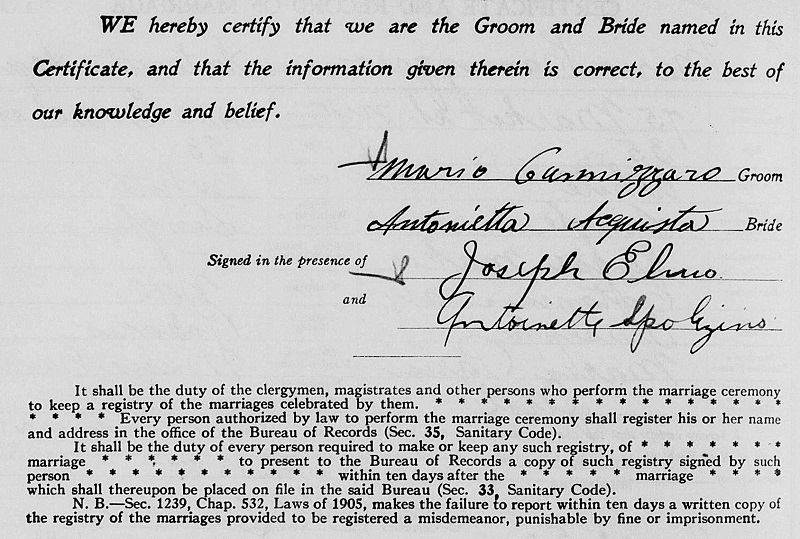 WE hereby certify that we are the Groom and Bride named in this
Certificate, and that the information given therein is correct, to the best of
our knowledge and belief.
Mario Cannizzaro Groom
Antonietta Acquista Bride
Signed in the presence of Joseph Elmo
and Antoinette Spolizino
It shall be the duty of the clergymen, magistrates and other persons who perform the marriage ceremony
to keep a registry of the marriages celebrated by them. * * * * * * * * * * * * * * *
* * * * Every person authorized by law to perform the marriage ceremony shall register his or her name
and address in the office of the Bureau of Records (Sec. 35, Sanitary Code).
It shall be the duty of every person required to make or keep any such registry, of * * * * * * *
marriage * * * * * * to present to the Bureau of Records a copy of such registry signed by such
person * * * * * * * * * * * within ten days after the * * * * * marriage * * * *
which shall thereupon be placed on file in the said Bureau (Sec. 33, Sanitary Code).
N. B.—Sec. 1239, Chap. 532, Laws of 1905, makes the failure to report within ten days a written copy of
the registry of the marriages provided to be registered a misdemeanor, punishable by fine or imprisonment.